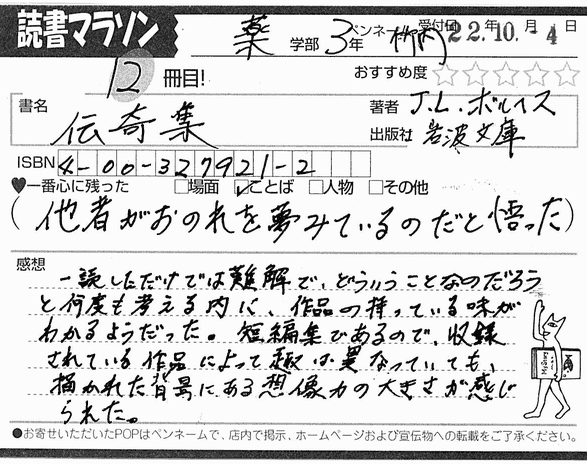 読書マラソン 薬 学部 3年 ペンネーム 柳内 受付日 22年10月-4日
12冊目! おすすめ度 ☆☆☆☆☆
書名 伝奇集 著者 J.L.ボルヘス
出版社 岩波文庫
ISBN 4-00-327921-2
♥一番心に残った □場面 ☑ことば □人物 □その他
(他者がおのれを夢みているのだと悟った)
感想
一読しただけでは難解で、どういうことなのだろう
と何度も考える内に、作品の持っている味が
わかるようだった。短編集であるので、収録
されている作品によって趣は異なっていても、
描かれた背景にある想像力の大きさが感じ
られた。
●お寄せいただいたPOPはペンネームで、店内で掲示、ホームページおよび宣伝物への転載をご了承ください。